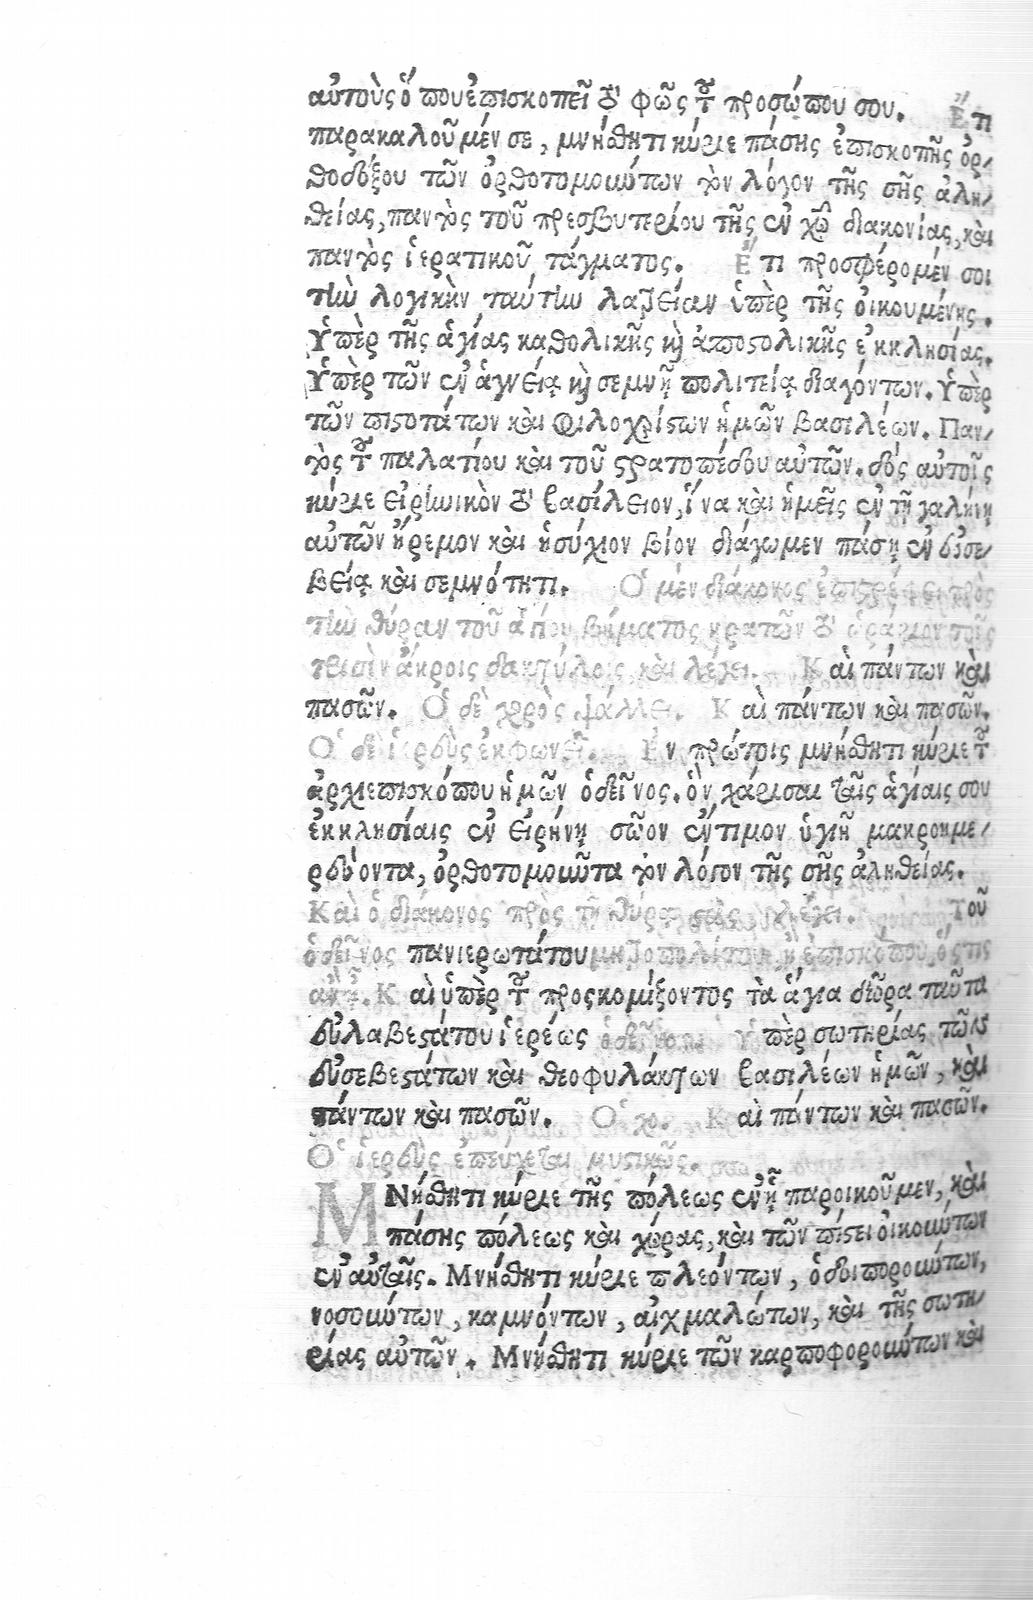 αὐτοὺς ὅπου ἐπισκοπεῖ τὸ φῶς τοῦ προσώπου σου. Ἔτι
παρακαλοῦμέν σε, μνήσθητι κύριε πάσης ἐπισκοπῆς ὀρ/
θοδόξου τῶν ὀρθοτομούντων τὸν λόγον τῆς σῆς ἀλη/
θείας, παντὸς τοῦ πρεσβυτερίου τῆς ἐν χῷ διακονίας, καὶ
παντὸς ἱερατικοῦ τάγματος. Ἔτι προσφέρομέν σοι
τὴν λογικὴν ταύτην λατρείαν ὑπὲρ τῆς οἰκουμένης.
Ὑπὲρ τῆς ἁγίας καθολικῆς καὶ ἀποστολικῆς ἐκκλησίας.
Ὑπὲρ τῶν ἐν ἁγνείᾳ καὶ σεμνῇ πολιτείᾳ διαγόντων. Ὑπὲρ
τῶν πιστοτάτων καὶ φιλοχρίστων ἡμῶν βασιλέων. Παν/
τὸς τοῦ παλατίου καὶ τοῦ στρατοπέδου αὐτῶν. δὸς αὐτοῖς
κύριε εἰρηνικὸν τὸ βασίλειον, ἵνα καὶ ἡμεῖς ἐν τῇ γαλήνῃ
αὐτῶν ἤρεμον καὶ ἡσύχιον βίον διάγωμεν πάσῃ ἐν εὐσε/
βείᾳ καὶ σεμνότητι. Ὁ μὲν διάκονος ἐπιστρέφει πρὸς
τὴν θύραν τοῦ ἁγίου βήματος κρατῶν τὸ ὡράριον τοῖς
τρισὶν ἄκροις δακτύλοις καὶ λέγει. Καὶ πάντων καὶ
πασῶν. Ὁ δὲ χορὸς ψάλλει. Καὶ πάντων καὶ πασῶν.
Ὁ δὲ ἱερεὺς ἐκφωνεῖ. Ἐν πρώτοις μνήσθητι κύριε τοῦ
ἀρχιεπισκόπου ἡμῶν ὁδεῖνος. ὃν χάρισαι ταῖς ἁγίαις σου
ἐκκλησίαις ἐν εἰρήνῃ σῶον ἔντιμον ὑγιῆ μακροημε/
ρεύοντα, ὀρθοτομοῦντα τὸν λόγον τῆς σῆς ἀληθείας.
Καὶ ὁ διάκονος πρὸς τῇ θύρᾳ στὰς λέγει. Τοῦ
ὁδεῖνος πανιερωτάτου μητροπολίτου ἢ ἐπισκόπου ὅστις
ἂν ᾖ. Καὶ ὑπὲρ τοῦ προσκομίζοντος τὰ ἅγια δῶρα ταῦτα
εὐλαβεστάτου ἱερέως ὁδεῖνος. Ὑπὲρ σωτηρίας τῶν
εὐσεβεστάτων καὶ θεοφυλάκτων βασιλέων ἡμῶν, καὶ
πάντων καὶ πασῶν. Ὁ χο. Καὶ πάντων καὶ πασῶν.
Ὁ ἱερεὺς ἐπεύχεται μυστικῶς.
Μνήσθητι κύριε τῆς πόλεως ἐν ᾗ παροικοῦμεν, καὶ
πάσης πόλεως καὶ χώρας, καὶ τῶν πίστει οἰκούντων
ἐν αὐταῖς. Μνήσθητι κύριε πλεόντων, ὁδοιπορούντων,
νοσούντων, καμνόντων, αἰχμαλώτων, καὶ τῆς σωτη/
ρίας αὐτῶν. Μνήσθητι κύριε τῶν καρποφορούντων καὶ